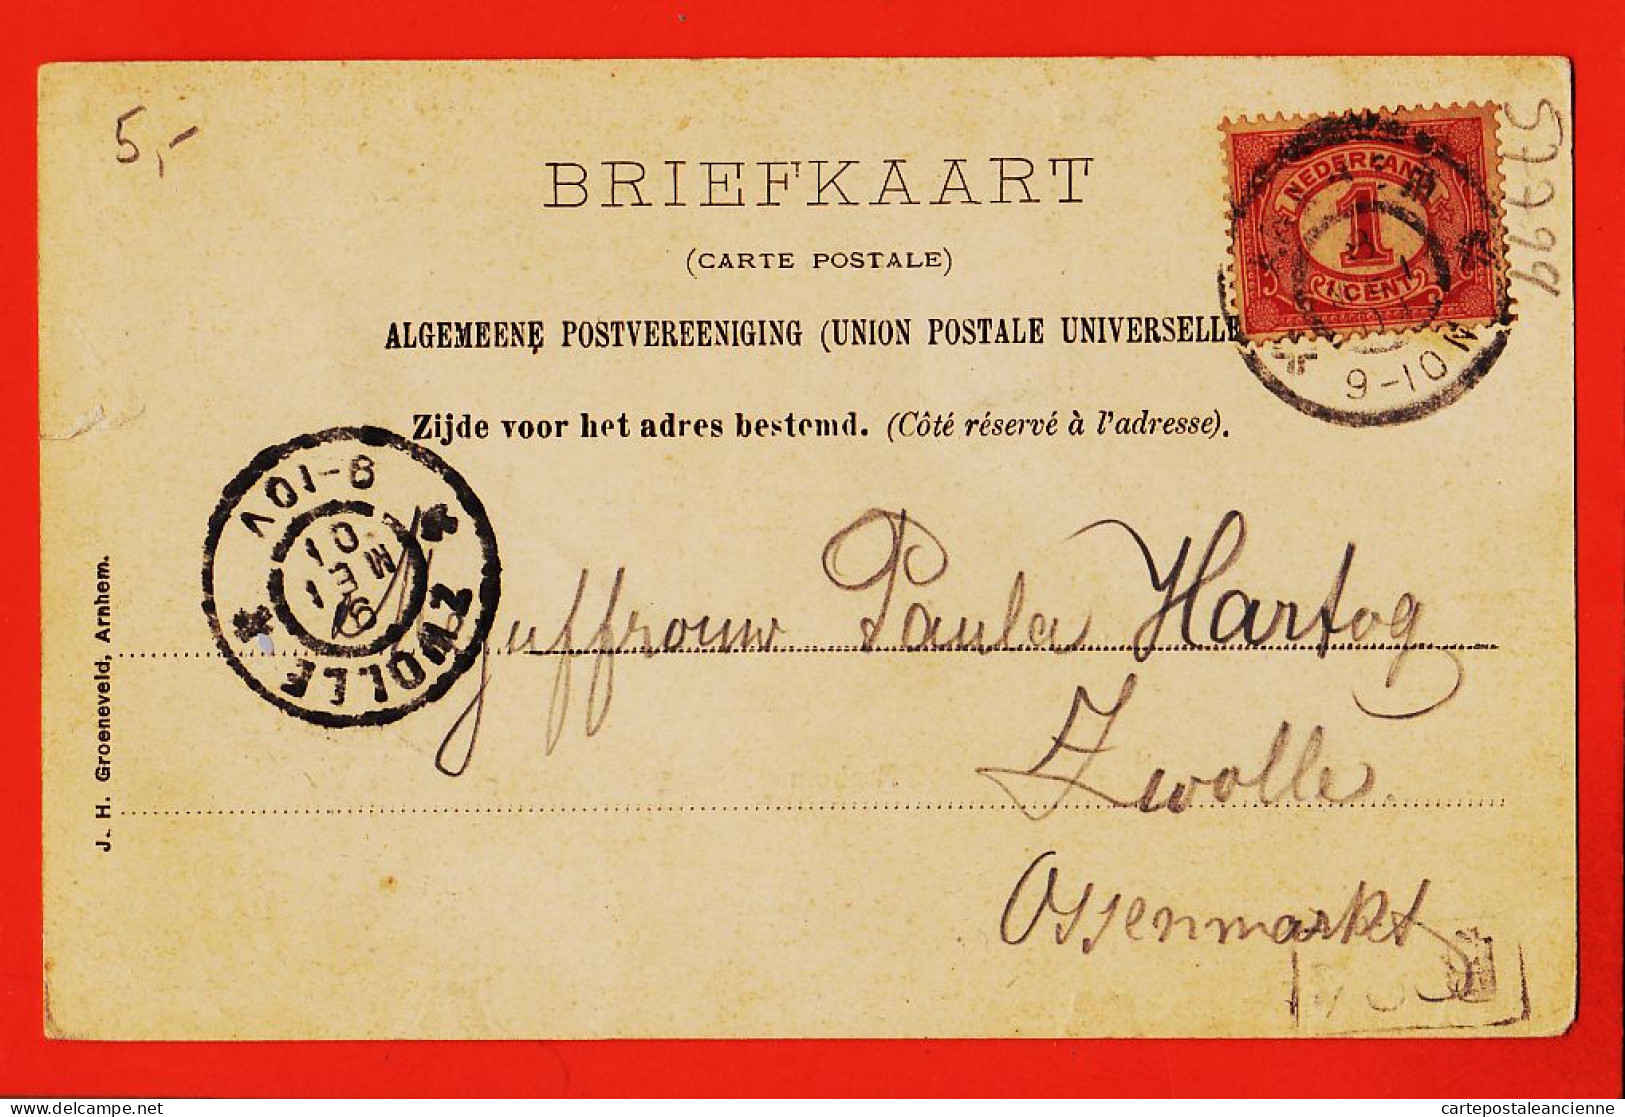 5,-
57799
BRIEFKAART
(CARTE POSTALE)
ALGEMEENE POSTVEREENIGING (UNION POSTALE UNIVERSELLE
Zijde voor het adres bestemd. (Côté réservé à l'adresse).
NEDERLAND
1
1 CENT
9-10 V
8-10V
10
ZWOLLE
Juffrouw Paula Hartog
Zwolle
Ossenmarkt
J. H. Groeneveld, Arnhem.
delcampe.net
cartepostaleancienne